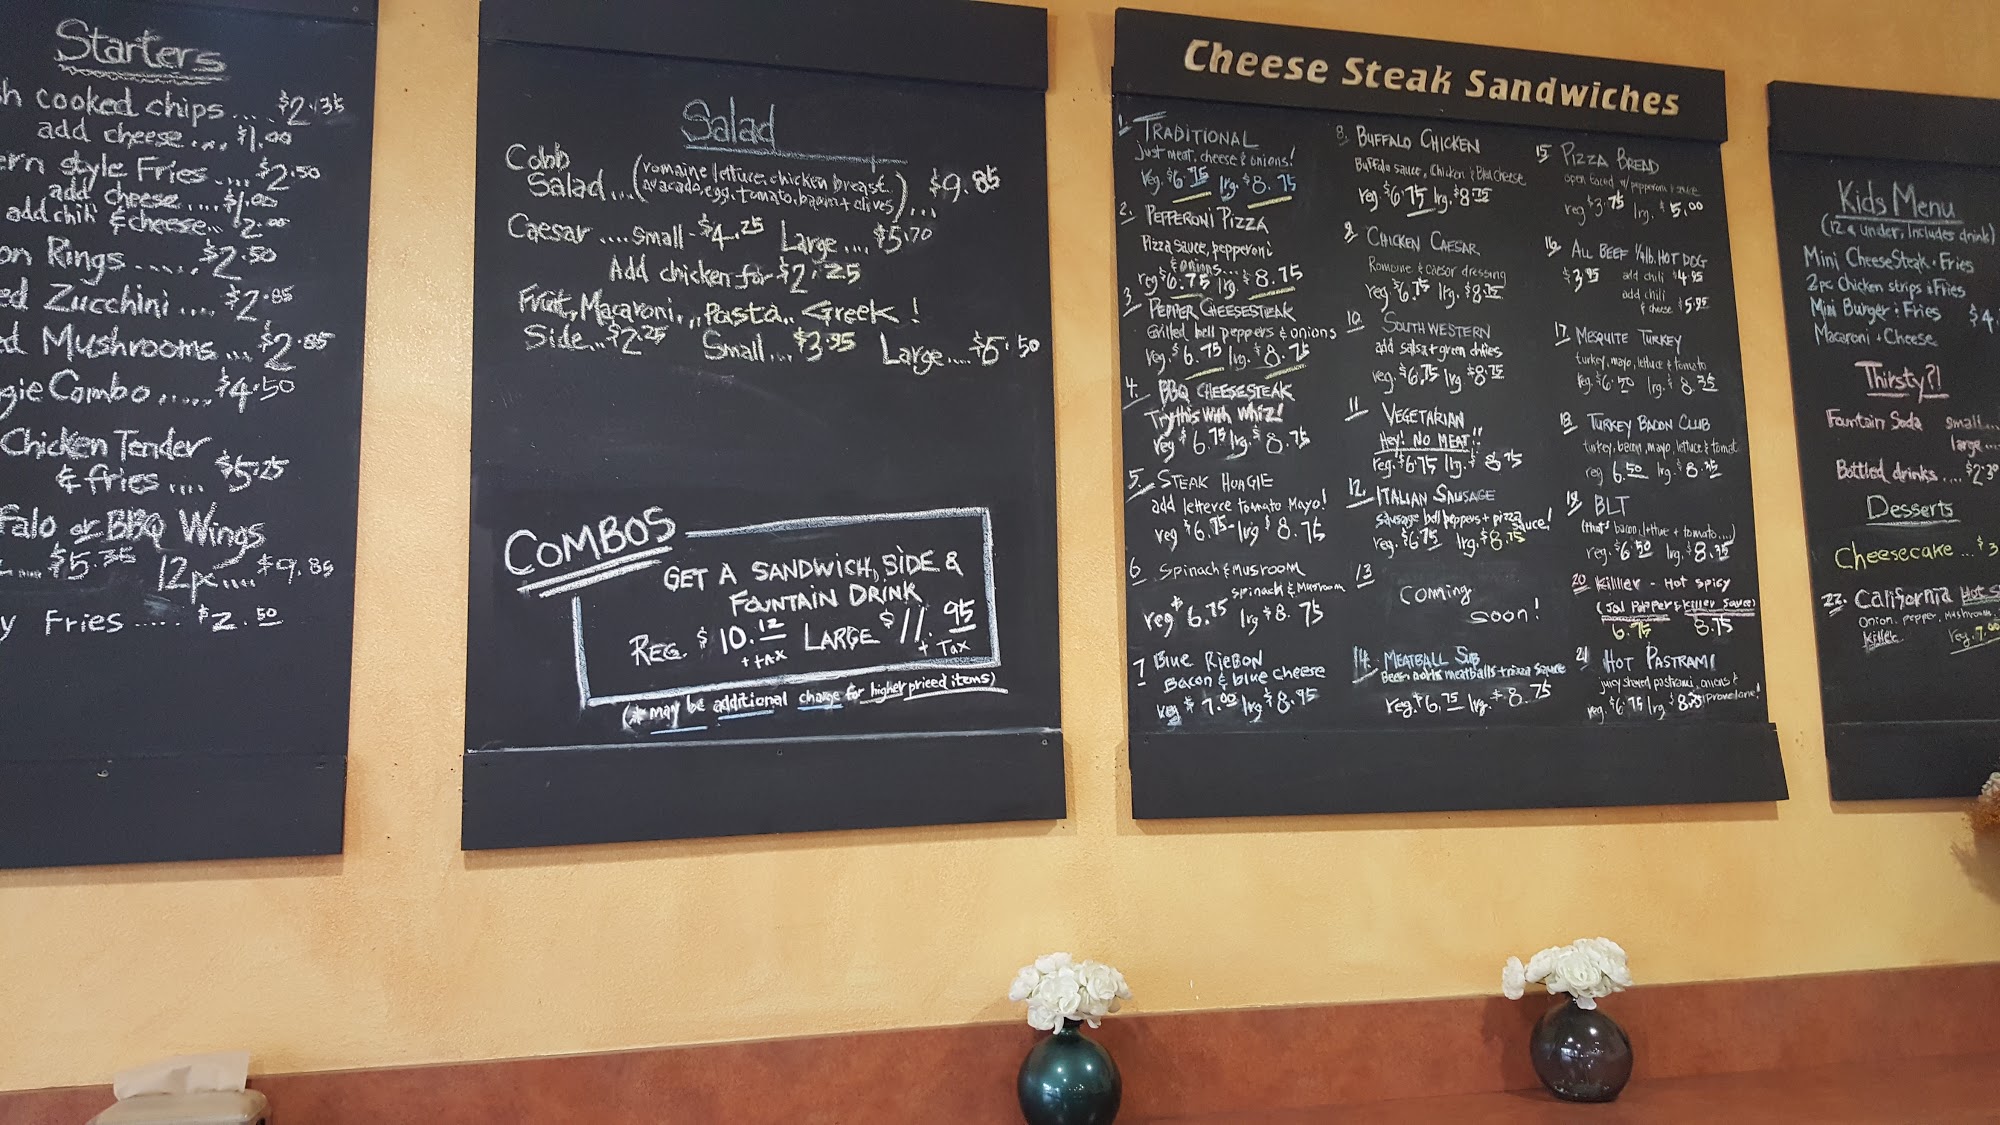 Starters
cooked chips .... $2.35
add cheese .... $1.00
style Fries .... $2.50
add cheese .... $1.00
add chili & cheese... $2.00
Rings ...... $2.50
Zucchini ..... $2.85
Mushrooms ... $2.85
Combo ..... $4.50
Chicken Tender
& fries .... $5.25
or BBQ Wings
$5.35 12pc .... $9.85
Fries ..... $2.50
Salad
Cobb
Salad ... (romaine lettuce, chicken breast
avacado, egg, tomato, bacon + olives) ... $9.85
Caesar .... Small - $4.25 Large .... $5.70
Add chicken for $2.25
Fruit, Macaroni, Pasta.. Greek!
Side.. $2.25 Small .... $3.95 Large .... $5.50
COMBOS
GET A SANDWICH, SIDE &
FOUNTAIN DRINK
REG. $10.12 + tax LARGE $11.95 + Tax
(* may be additional charge for higher priced items)
Cheese Steak Sandwiches
1. TRADITIONAL
Just meat, cheese & onions!
reg. $6.75 lrg. $8.75
2. PEPPERONI PIZZA
Pizza sauce, pepperoni
& onions...
reg $6.75 lrg. $8.75
3. PEPPER CHEESESTEAK
Grilled bell peppers & onions
reg $6.75 lrg. $8.75
4. BBQ CHEESESTEAK
Try this with whiz!
reg $6.75 lrg. $8.75
5. STEAK HOAGIE
add letterce tomato Mayo!
reg $6.75 lrg $8.75
6. SPINACH & MUSROOM
spinach & Musroom
reg $6.75 lrg $8.75
7 Blue RIBBON
Bacon & blue cheese
reg $7.00 lrg $8.95
8. BUFFALO CHICKEN
Buffalo sauce, Chicken & Blue Cheese
reg $6.75 lrg. $8.75
9. CHICKEN CAESAR
Romaine & caesar dressing
Reg $6.75 lrg. $8.75
10. SOUTHWESTERN
add salsa + green chiles
reg. $6.75 lrg $8.75
11 VEGETARIAN
Hey! NO MEAT!!
reg. $6.75 lrg. $8.75
12. ITALIAN SAUSAGE
sausage bell peppers + pizza
sauce!
reg. $6.75 lrg. $8.75
13 COMING
SOON!
14. MEATBALL SUB
meatballs + pizza sauce
reg. $6.75 lrg. $8.75
15 PIZZA BREAD
open faced w/ pepperoni & sauce
reg $3.75 lrg. $5.00
16 ALL BEEF 1/4lb. HOT DOG
$3.95 add chili $4.95
add chili
& cheese $5.95
17. MESQUITE TURKEY
turkey, mayo, lettuce + tomato
reg. $6.50 lrg. $8.35
18. TURKEY BACON CLUB
turkey, bacon, mayo, lettuce & tomat
reg 6.50 lrg. $8.35
19. BLT
(that's bacon, lettuce + tomato....)
reg. $6.50 lrg. $8.35
20 Killler - Hot Spicy
(Jal Pepper & Killer Sauce)
6.75 8.75
21 HOT PASTRAMI
juicy shaved pastrami, onions &
provolone!
reg. $6.75 lrg $8.75
Kids Menu
(12 & under, includes drink)
Mini CheeseSteak & Fries
2pc Chicken strips & Fries
Mini Burger & Fries $4.
Macaroni + Cheese
Thirsty?!
Fountain Soda small...
large...
Bottled drinks.... $2.30
Desserts
Cheesecake ... $3
22. California Hot
Onion, pepper, Mushroom
Killer reg. 7.00